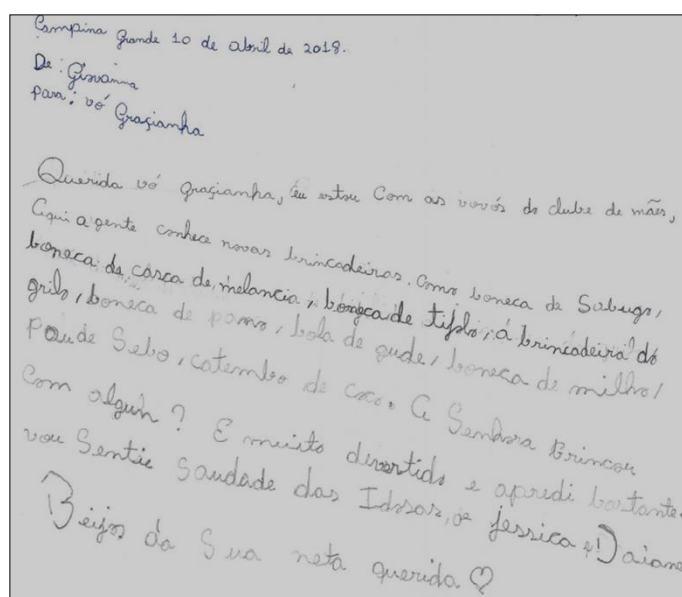 Campina Grande 10 de abril de 2018.
De: Giovanna
para: vó Graçianha
Querida vó graçianha, eu estou Com as vovós do clube de mães,
Aqui a gente conhece novas brincadeiras. Como boneca de Sabugo,
boneca de casca de melancia, boneca de tijolo, a brincadeira do
grilo, boneca de pano, bola de gude, boneca de milho,
Pau de Sebo, catembo de coco. A Senhora Brincou
Com algun? E muito divertido e apredi bastante.
vou Sentir Saudade das Idosas, jessica e Daiane
Beijos da Sua neta querida ♡